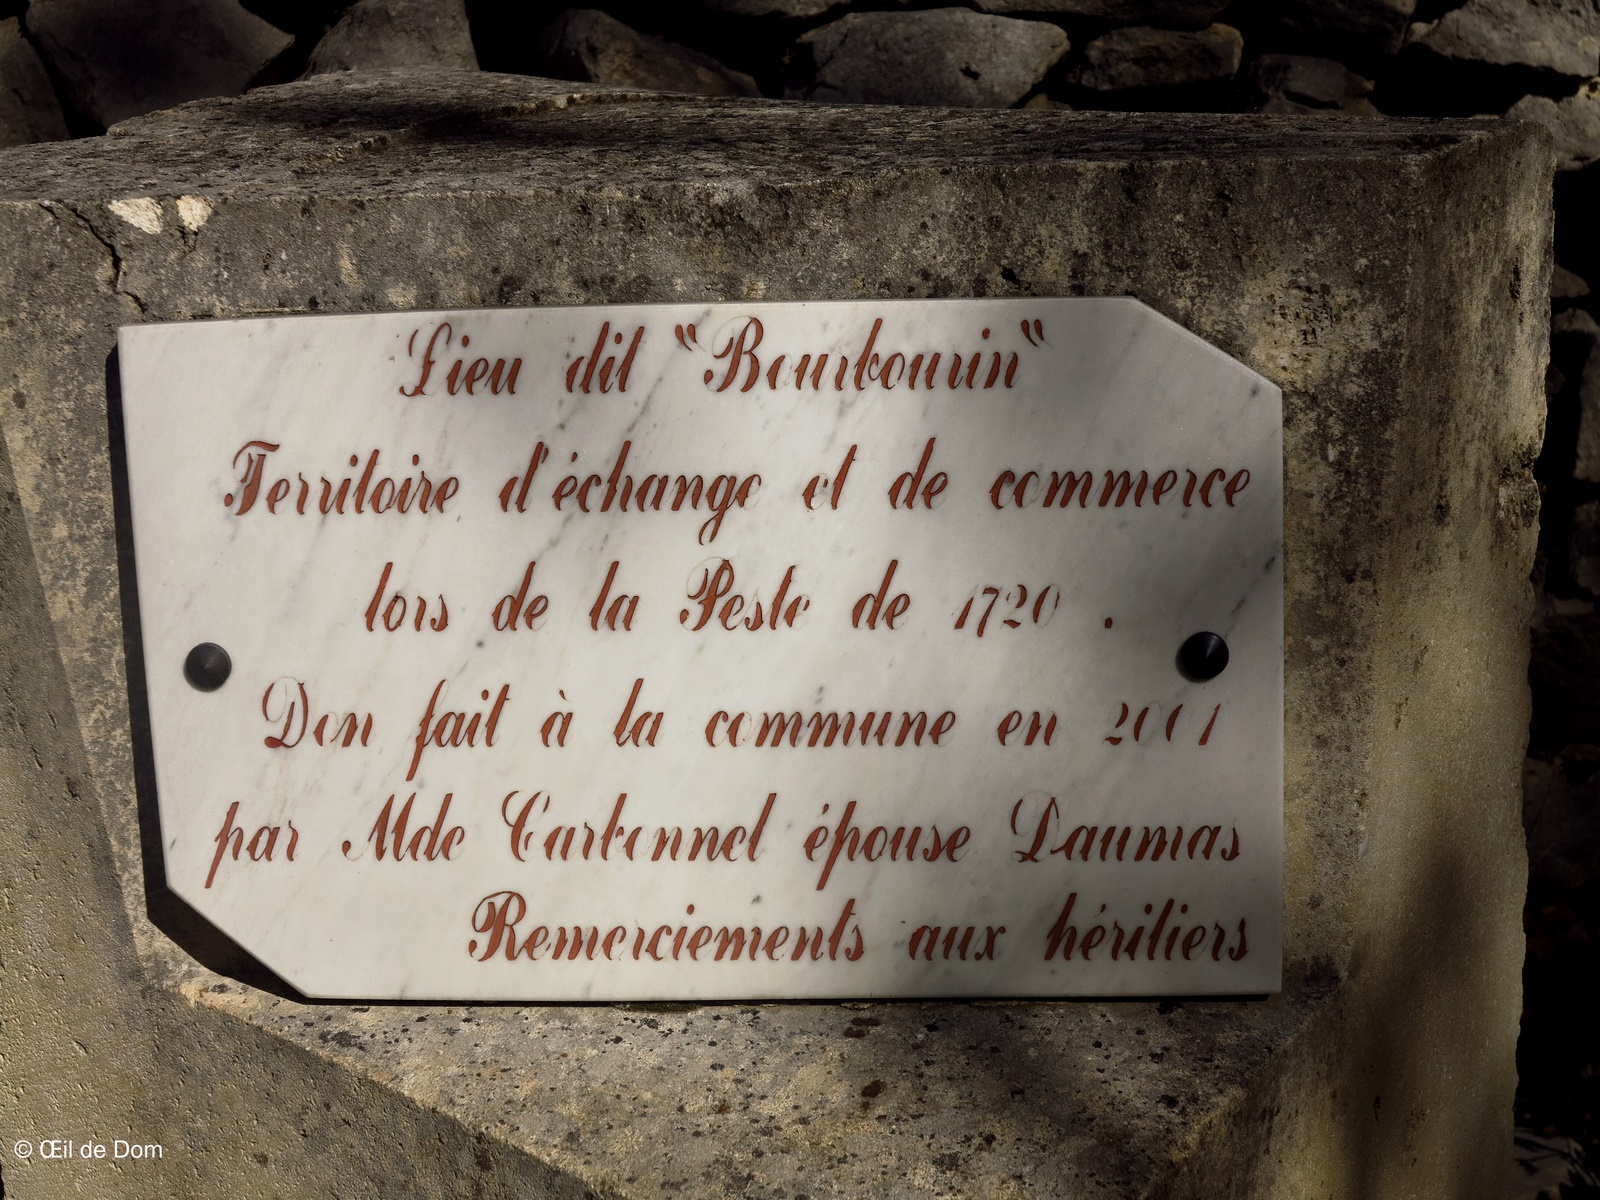 Lieu dit "Bourbourin"
Territoire d'échange et de commerce
lors de la Peste de 1720 .
Don fait à la commune en 2001
par Mde Carbonnel épouse Daumas
Remerciements aux héritiers
© Œil de Dom